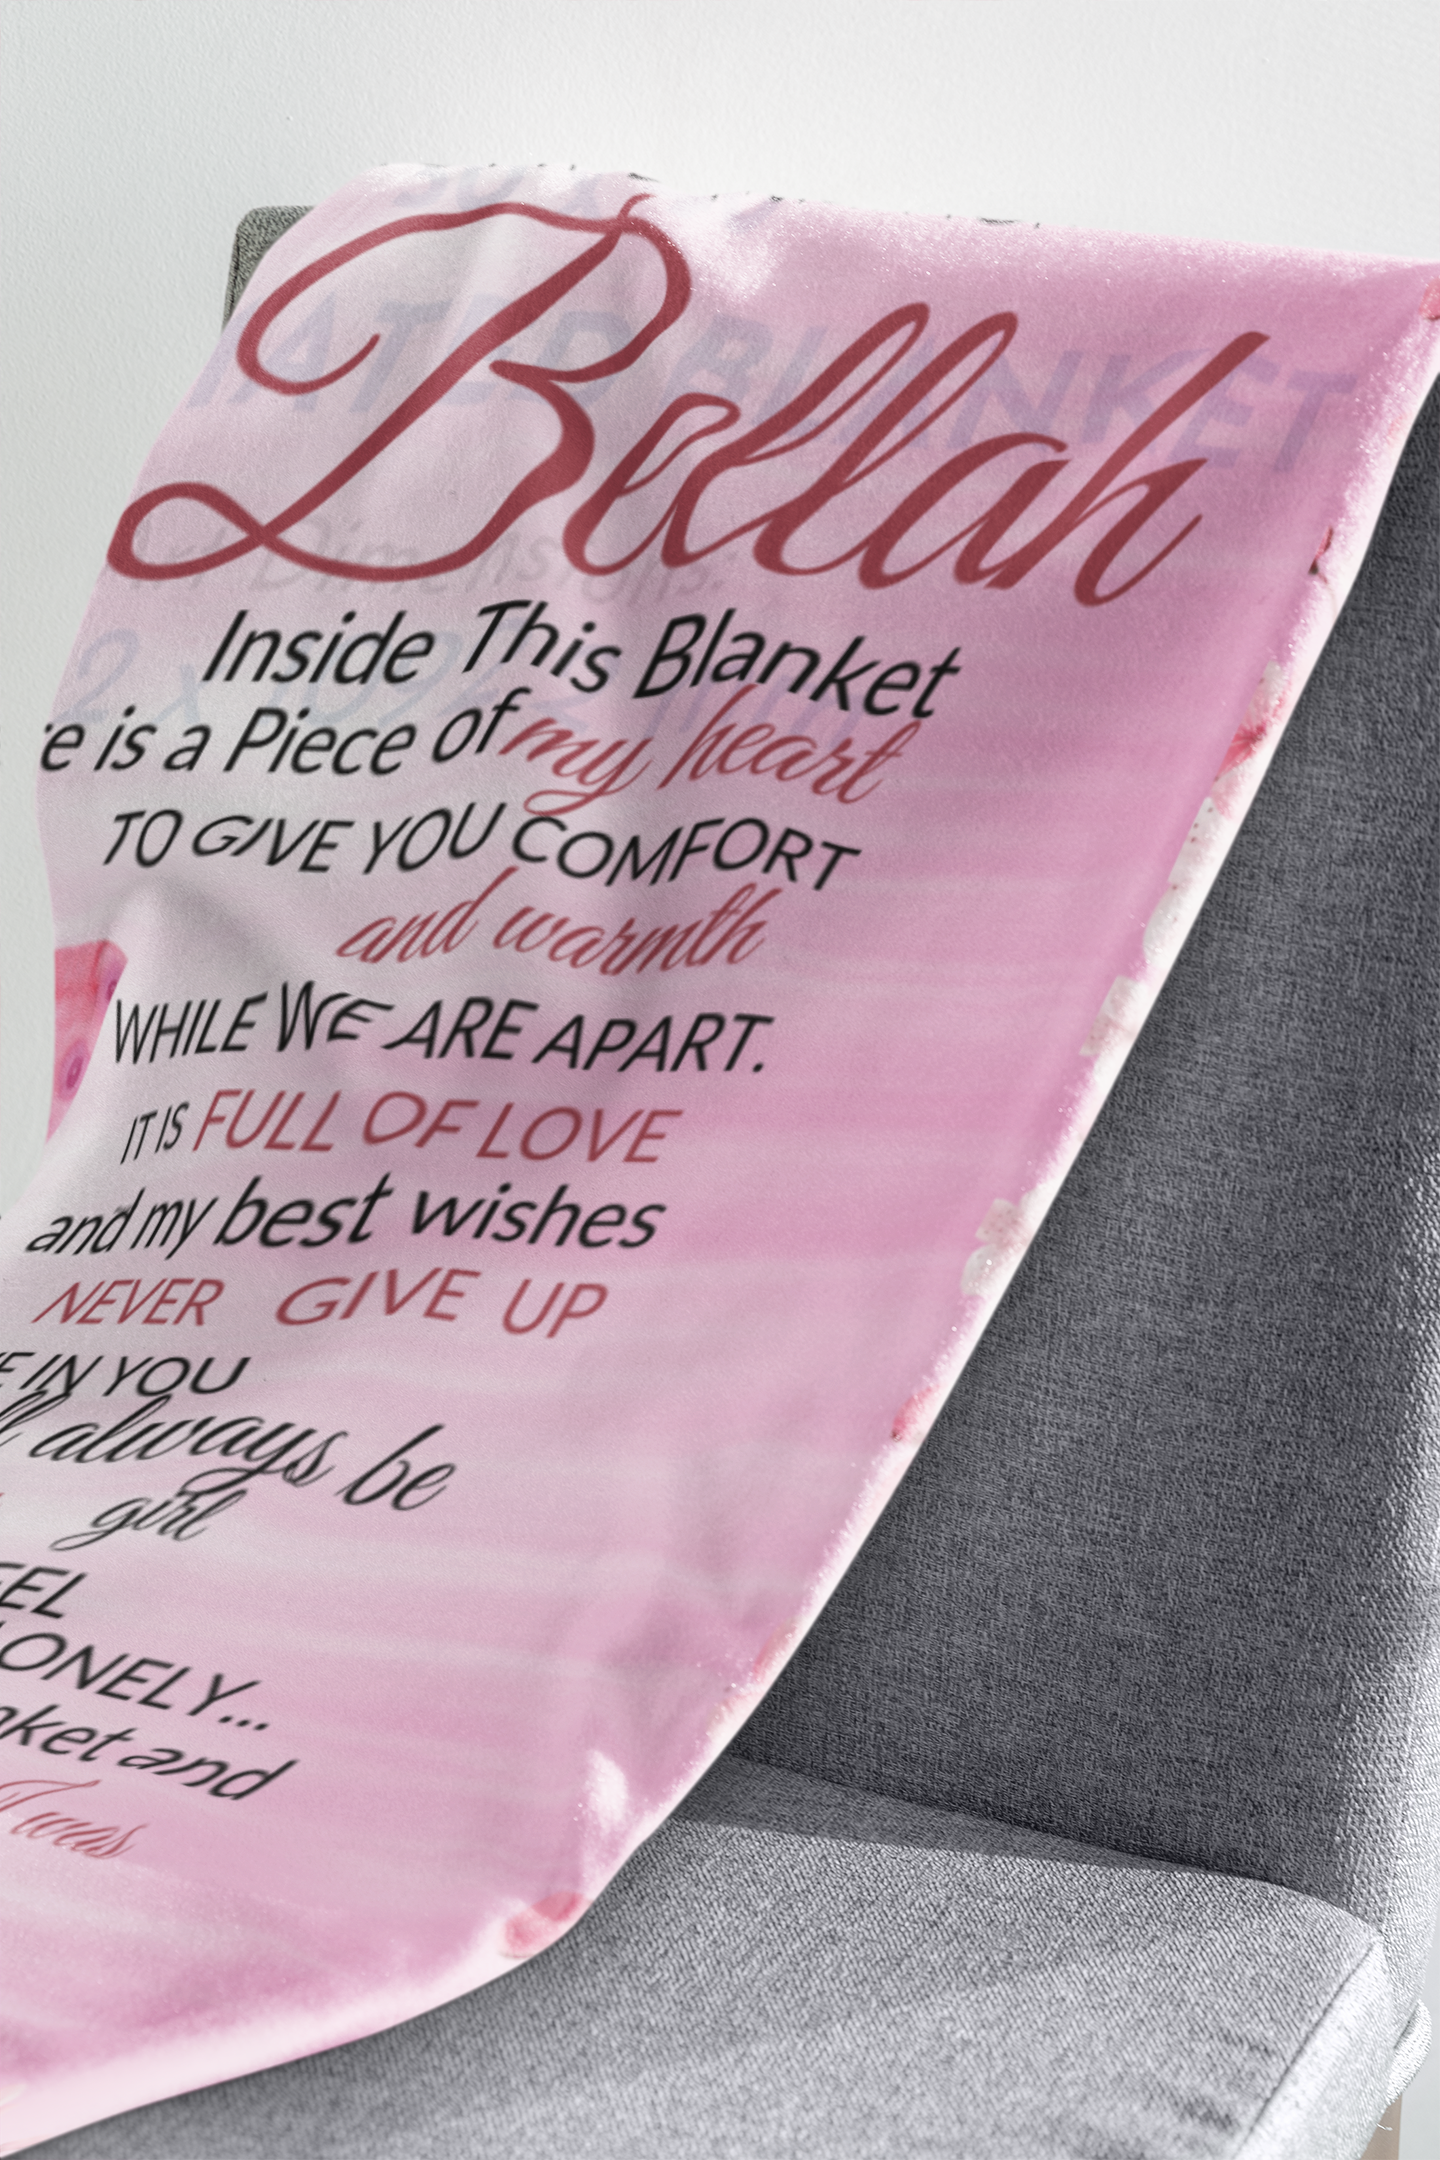 Bellah
ATED BLANKET
Art Dimensions:
Inside This Blanket
re is a Piece of my heart
TO GIVE YOU COMFORT
and warmth
WHILE WE ARE APART.
IT IS FULL OF LOVE
and my best wishes
NEVER GIVE UP
E IN YOU
ll always be
girl
EEL
LONELY...
nket and
I was